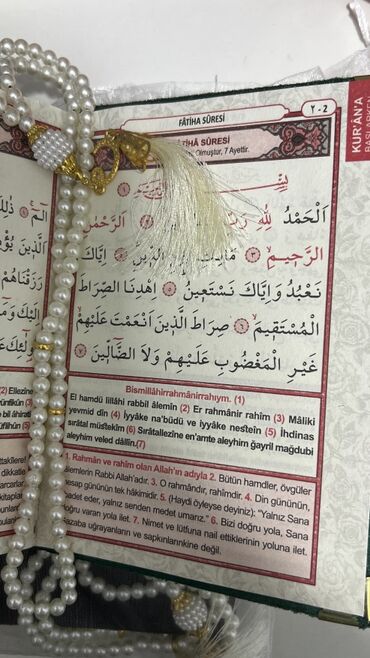 FÂTİHA SÛRESİ
٢ - 2
KUR'ÂN'A
BAŞLARKEN
SÛRESİ
Olmuştur, 7 Ayettir.
اَلْحَمْدُ لِلّٰهِ رَبِّ
الرَّحْمٰنِ
الرَّحٖيمِۙ ﴿٣﴾ الدّٖينِ اِيَّاكَ
نَعْبُدُ وَاِيَّاكَ نَسْتَعٖينُۜ ﴿٥﴾ اِهْدِنَا الصِّرَاطَ
الْمُسْتَقٖيمَۙ ﴿٦﴾ صِرَاطَ الَّذٖينَ اَنْعَمْتَ عَلَيْهِمْۙ
غَيْرِ الْمَغْضُوبِ عَلَيْهِمْ وَلَا الضَّٓالّٖينَ ﴿٧﴾
Bismillâhirrahmânirrahıym. (1)
El hamdü lillâhi rabbil âlemîn (2) Er rahmânir rahîm (3) Mâliki
yevmid dîn (4) İyyâke na'büdü ve iyyâke nesteîn (5) İhdinas
sırâtal müstekîm (6) Sırâtallezîne en'amte aleyhim ğayril mağdubi
aleyhim veled dâllîn.(7)
1. Rahmân ve rahîm olan Allah'ın adıyla 2. Bütün hamdler, övgüler
âlemlerin Rabbi Allah'adır. 3. O rahmândır, rahîmdir. 4. Din gününün,
hesap gününün tek hâkimidir. 5. (Haydi öyleyse deyiniz): "Yalnız Sana
ibadet eder, yalnız senden medet umarız." 6. Bizi doğru yola, Sana
doğru varan yola ilet. 7. Nimet ve lütfuna nail ettiklerinin yoluna ilet.
Gazaba uğrayanların ve sapkınlarınkine değil.